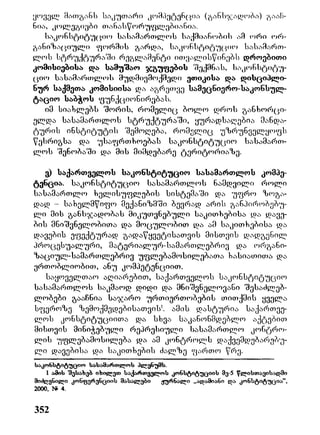 ყოველ მათგანს საკუთარი კომპეტენცია (განსჯადობა) გააჩ-
ნია, კოლეგიები თანასწორუფლებიანია.
საკონსტიტუციო სასამართლოს საქმიანობის ამ ორი ორ-
განიზაციული ფორმის გარდა, საკონსტიტუციო სასამართ-
ლოს სტრუქტურაში რეგლამენტი ითვალისწინებს დროებითი
კომისიებისა და სამუშაო ჯგუფების შექმნას, საკონსტიტუ-
ციო სასამართლოს მუდმივმოქმედი ეთიკისა და დისციპლი-
ნურ საქმეთა კომისიისა და აგრეთვე სამეცნიერო-საკონსულ-
ტაციო საბჭოს ფუნქციონირებას.
იმ სიახლებს შორის, რომელიც ბოლო დროს განხორცი-
ელდა სასამართლოს სტრუქტურაში, ყურადსაღებია მანდა-
ტურის ინსტიტუტის შემოღება, რომელიც უზრუნველყოფს
წესრიგსა და უსაფრთხოებას საკონსტიტუციო სასამართ-
ლოს შენობაში და მის მიმდებარე ტერიტორიაზე.
ვ) საქართველოს საკონსტიტუციო სასამართლოს კომპე-
ტენცია. საკონსტიტუციო სასამართლოს ნამდვილი როლი
სასამართლო ხელისუფლების სისტემაში და უფრო ზოგა-
დად – სახელმწიფო მექანიზმში ბევრად არის განპირობებუ-
ლი მის განსჯადობას მიკუთვნებული საკითხებისა და დავე-
ბის მნიშვნელობითა და მოცულობით და ამ საკითხებისა და
დავების ეფექტურად გადაწყვეტისათვის მისთვის დადგენილ
პროცესუალური, მატერიალურ-სამართლებრივ და ორგანი-
ზაციულ-სამართლებრივ უფლებამოსილებათა ხასიათითა და
ერთობლიობით, ანუ კომპეტენციით.
საყოველთაო აღიარებით, საქართველოს საკონსტიტუციო
სასამართლოს საკმაოდ დიდი და მნიშვნელოვანი შესაძლებ-
ლობები გააჩნია საჯარო ურთიერთობების თითქმის ყველა
სფეროზე ზემოქმედებისათვის¹. ამის დასტურია საქართვე-
ლოს კონსტიტუციითა და სხვა საკანონმდებლო აქტებით
მისთვის მინიჭებული რეპრესიული სასამართლო კონტრო-
ლის უფლებამოსილება და ამ კონტროლს დაქვემდებარებუ-
ლი დავებისა და საკითხების ძალზე ფართო წრე.
საკონსტიტუციო სასამართლოს პლენუმს.
1 ამის შესახებ იხილეთ საქართველოს კონსტიტუციის მე-5 წლისთავისადმი
მიძღვნილი კონფერენციის მასალები ჟურნალი „ადამიანი და კონსტიტუცია”,
2000, № 4.
352